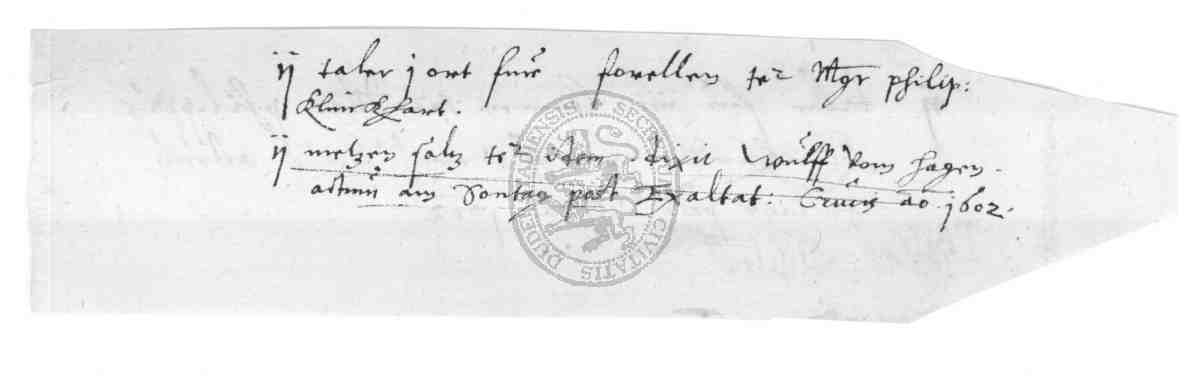 ij taler j ort fure forellen te͂ Mgr philip:
Klinckhart:
ij metzen saltz te͂ idem dixit Wulff vom hagen.
actum am Sontag post Exaltat: Crucis ao 1602.
SECRE CIVITATIS DUDE ADENSIS